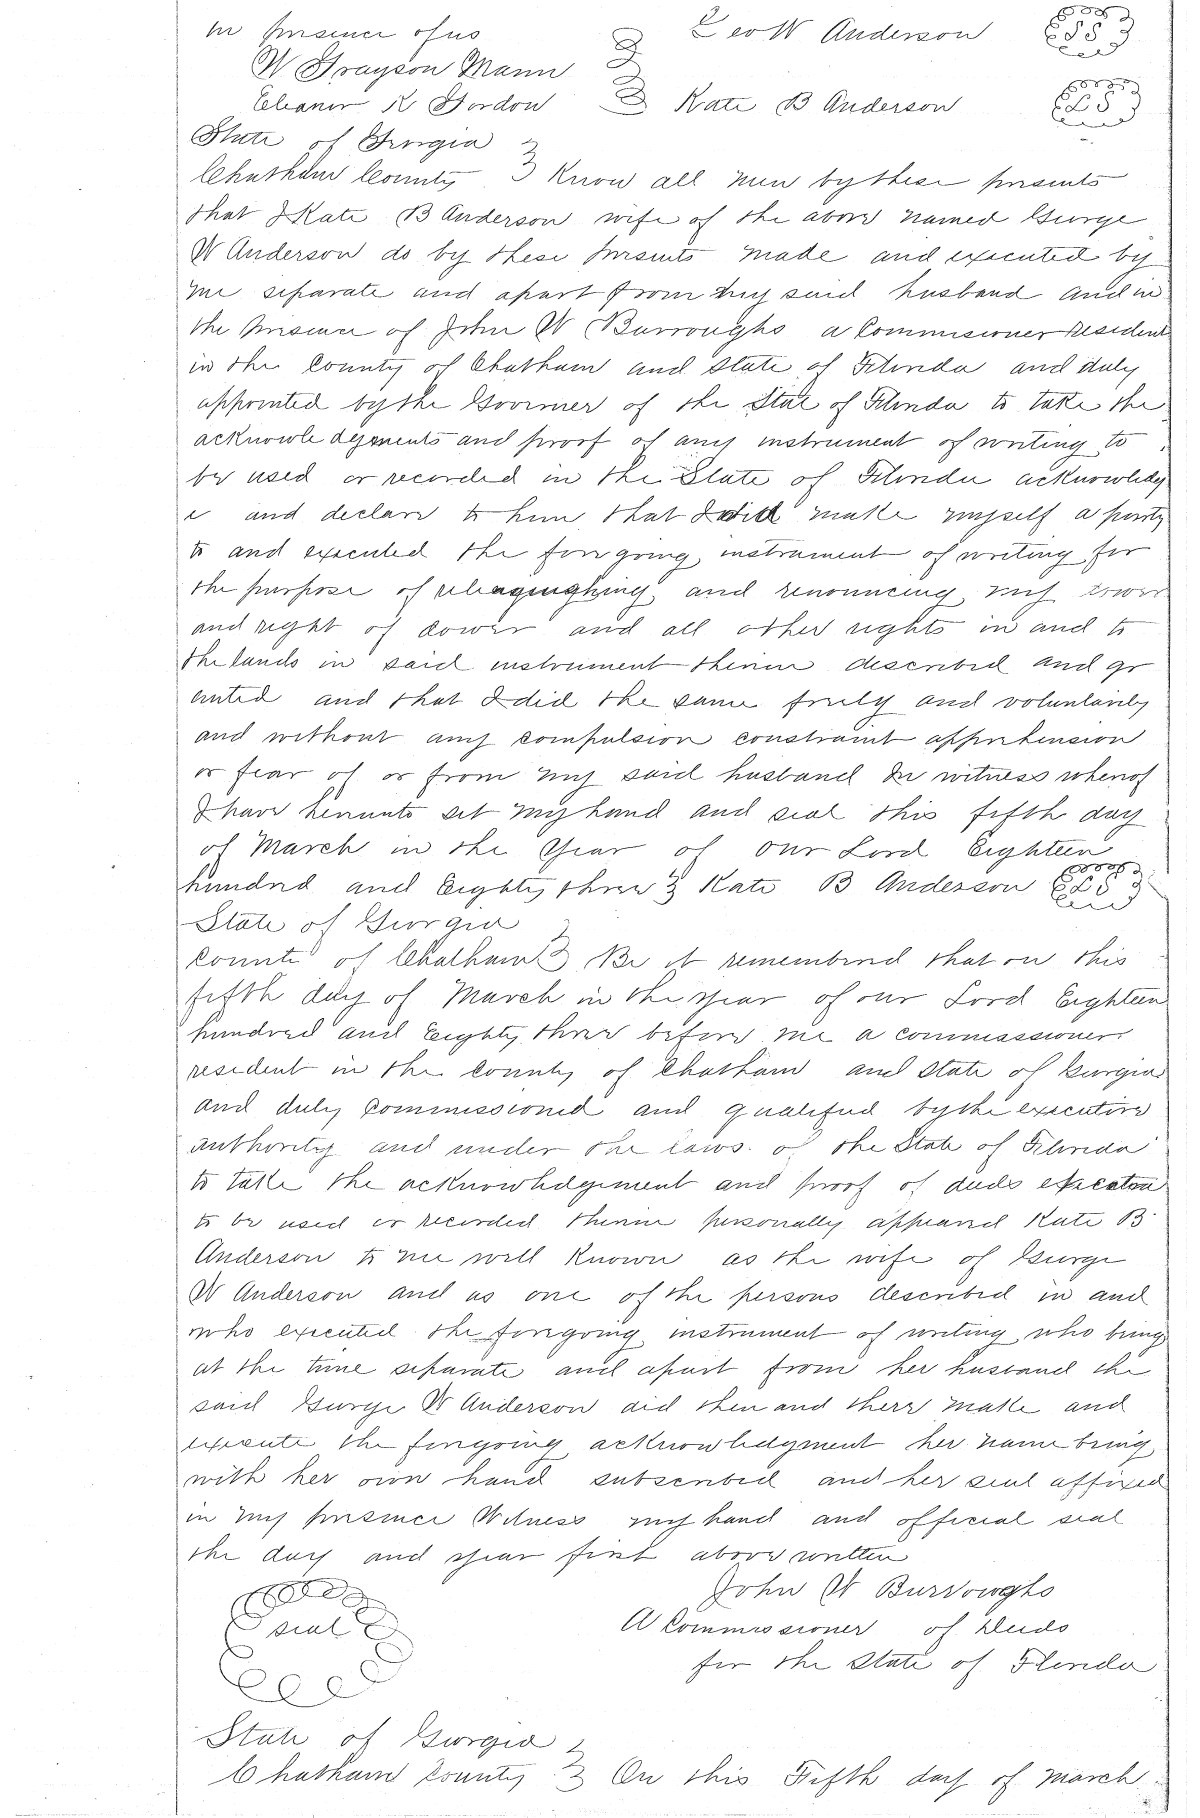 In presence of us Geo W Anderson LS
W Grayson Mann
Eleanor K Gordon Kate B Anderson LS
State of Georgia
Chatham County Know all men by these presents
that I Kate B Anderson wife of the above named George
W Anderson do by these presents made and executed by
me separate and apart from my said husband and in
the presence of John W Burroughs a Commisioner resident
in the County of Chatham and State of Florida and duly
appointed by the Governer of the State of Florida to take the
acknowledgements and proof of any instrument of writing to
be used or recorded in the State of Florida acknowledg
e and declare to him that I did make myself a party
to and executed the foregoing instrument of writing for
the purpose of and renouncing my
and right of dower and all other rights in and to
the lands in said instrument therein described and gr
anted and that I did the same freely and voluntarily
and without any compulsion constraint apprehension
or fear of or from my said husband In witness whereof
I have hereunto set my hand and seal this fifth day
of March in the Year of our Lord Eighteen
hundred and Eighty three Kate B Anderson LS
State of Georgia
County of Chatham Be it remembered that on this
fifth day of March in the year of our Lord Eighteen
hundred and Eighty three before me a commissioner
resident in the county of Chatham and State of Georgia
and duly commissioned and qualified by the executive
authority and under the laws of the State of Florida
to take the acknowledgement and proof of deeds
to be used or recorded therein personally appeared Kate B
Anderson to me well known as the wife of George
W Anderson and as one of the persons described in and
who executed the foregoing instrument of writing who being
at the time separate and apart from her husband the
said George W Anderson did then and there make and
execute the foregoing acknowledgment her name being
with her own hand subscribed and her seal affixed
in my presence Witness my hand and official seal
the day and year first above written
John W Burroughs
seal A Commissioner of Deeds
for the State of Florida
State of Georgia
Chatham County On this Fifth day of March